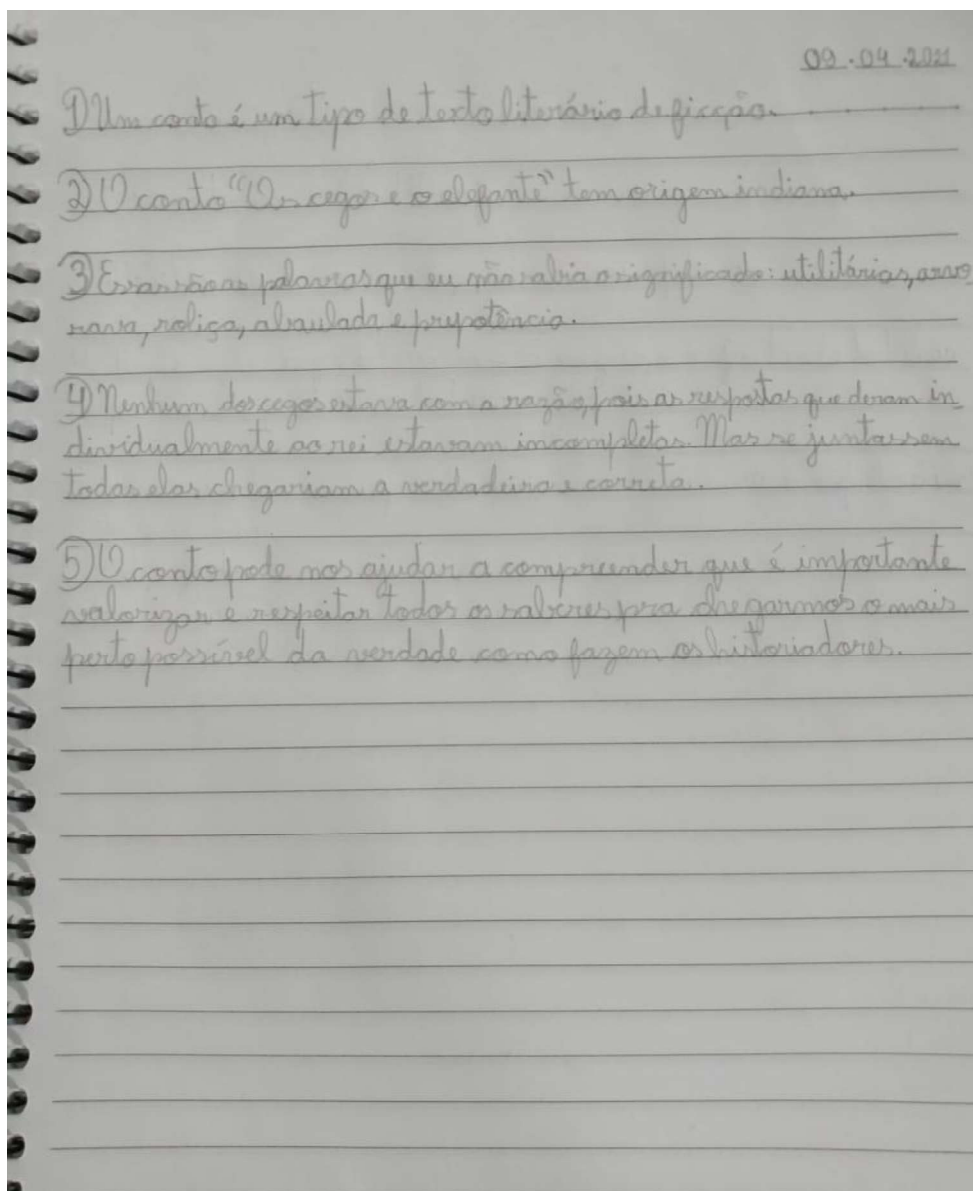 09.04.2021
1) Um conto é um tipo de texto literário de ficção.
2) O conto "Os cegos e o elefante" tem origem indiana.
3) Essas são as palavras que eu não sabia o significado: utilitárias,
roliça, abaulada e prepotência.
4) Nenhum dos cegos estava com a razão, pois as respostas que deram in-
dividualmente ao rei estavam incompletas. Mas se juntassem
todas elas chegariam a verdadeira e correta.
5) O conto pode nos ajudar a compreender que é importante
valorizar e respeitar todos os saberes pra chegarmos o mais
perto possível da verdade como fazem os historiadores.